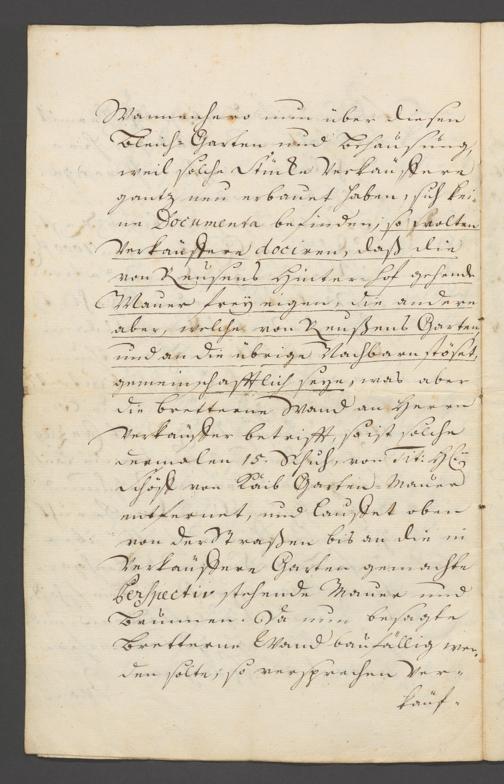 Wannenhero nun über diesen
Bleich-Garten und Behausung,
weil solche Stücke Verkäuffere
gantz neu erbauet haben, sich kei-
ne Documenta befinden, so sollen
Verkäuffere dociren, daß die
von Reußens Hinter-hof gehende
Mauer frey eigen, die andere
aber, welche von Reußens Garten,
und an die übrige Nachbarn stöset,
gemeinschafftlich seye, was aber
die bretterne Wand an Herrn
Verkäuffer betrifft, so ist solche
dermalen 15. Schuh, von Tit: H:
von Kaib Garten-Mauer
entfernet, und lauffet oben
von der Straßen bis an die in
Verkäuffere Garten gemachte
Perspectiv stehende Mauer und
Brunnen. Da nun besagte
bretterne Wand baufällig wer-
den solte, so versprechen Ver-
käuf-